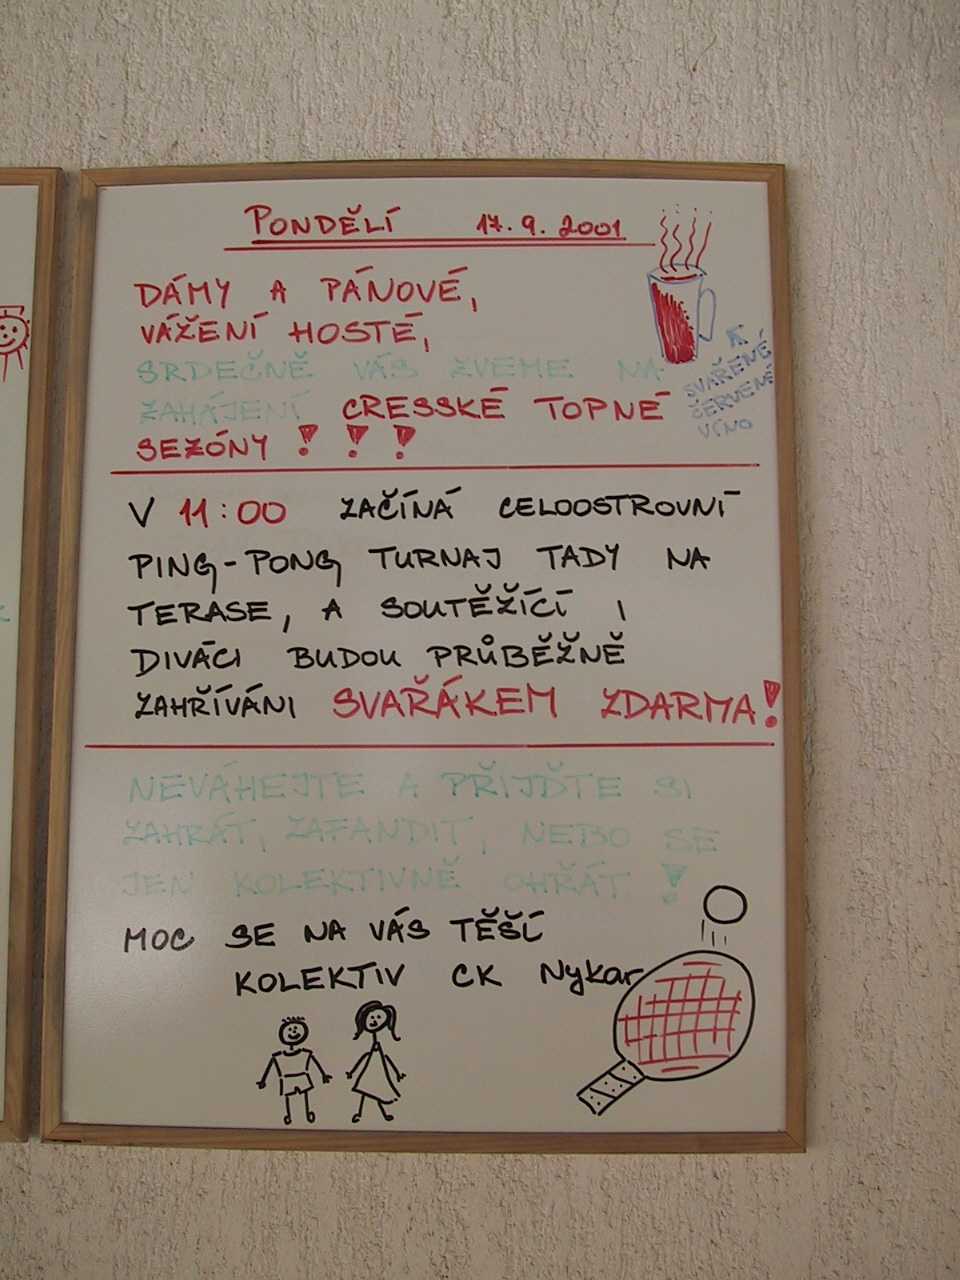 PONDĚLÍ 17.9.2001
DÁMY A PÁNOVÉ,
VÁŽENÍ HOSTÉ,
SRDEČNĚ VÁS ZVEME NA
ZAHÁJENÍ CRESSKÉ TOPNÉ
SEZÓNY !!!
SVAŘENÉ
ČERVENÉ
VÍNO
V 11:00 ZAČÍNÁ CELOOSTROVNÍ
PING-PONG TURNAJ TADY NA
TERASE, A SOUTĚŽÍCÍ I
DIVÁCI BUDOU PRŮBĚŽNĚ
ZAHŘÍVÁNI SVAŘÁKEM ZDARMA!
NEVÁHEJTE A PŘIJĎTE SI
ZAHRÁT, ZAFANDIT, NEBO SE
JEN KOLEKTIVNĚ OHŘÁT !
MOC SE NA VÁS TĚŠÍ
KOLEKTIV CK Nykar